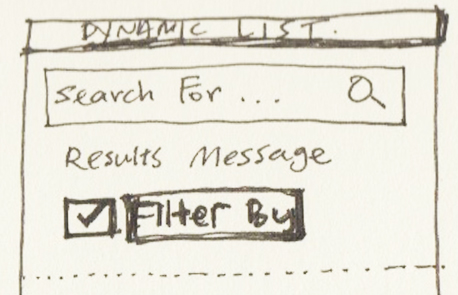 DYNAMIC LIST.
Search For ...
Results Message
Filter By